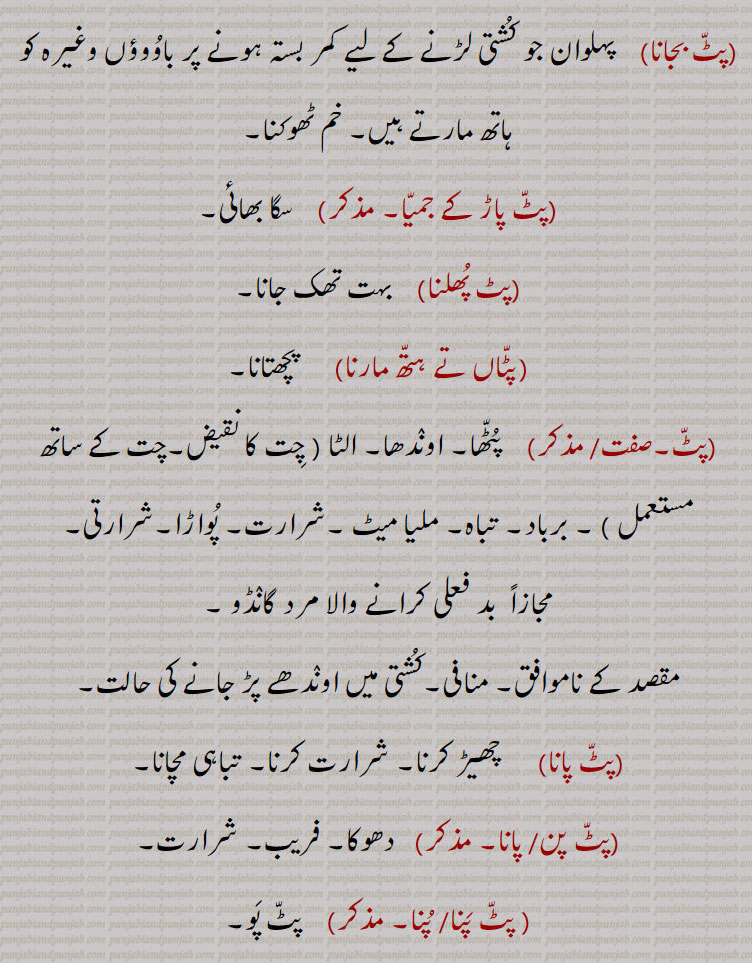 (پٹّ بجانا) پہلوان جو کُشتی لڑنے کے لیے کمر بستہ ہونے پر باوُوؤں وغیرہ کو
ہاتھ مارتے ہیں۔ خم ٹھوکنا۔
(پٹّ پاڑ کے جمیّا۔ مذکر) سگا بھائی۔
(پٹ پُھلنا) بہت تھک جانا۔
(پٹّاں تے ہتھّ مارنا) پچھتانا۔
(پٹّ۔صفت/ مذکر) پُٹھّا۔ اوندھا۔ الٹا ( چِت کا نقیض۔چت کے ساتھ
مستعمل ) ۔ برباد۔ تباہ۔ ملیا میٹ ۔شرارت۔ پُواڑا۔شرارتی۔
مجازاً بد فعلی کرانے والا مرد گانڈو ۔
مقصد کے ناموافق۔ منافی۔کُشتی میں اوندھے پڑ جانے کی حالت۔
(پٹّ پانا) چھیڑ کرنا۔ شرارت کرنا۔ تباہی مچانا۔
(پٹّ پن/ پانا۔ مذکر) دھوکا۔ فریب۔ شرارت۔
( پٹّ پَنا/ پُنا۔ مذکر) پٹّ پَو۔